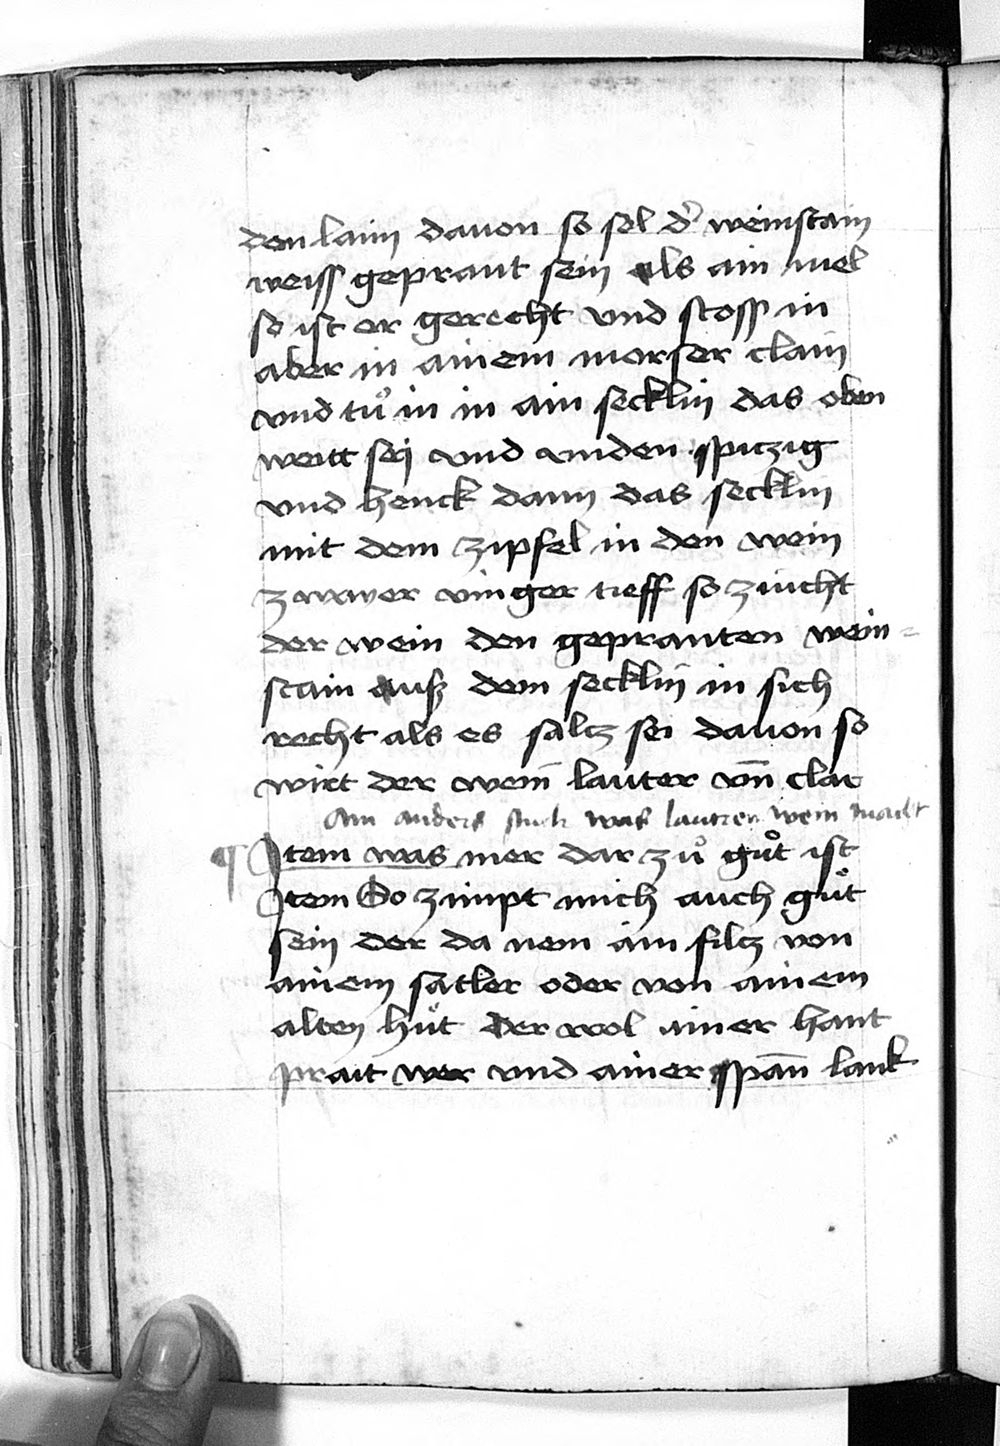 den laim dauon so sol d̉ weinstain
weiss geprant sein als ain mel
so ist er gerecht vnd stoss in
aber in ainem morser clain
vnd tuͦ in in ain secklin das oben
weitt seij vnd vnden spiczig
vnd henck dann das secklin
mit dem zipfel in den wein
zwaier vinger tieff so ziucht
der wein den gepranten wein=
stain auß dem secklin in sich
recht als es salcz sei dauon so
wirt der wein̄ lauter vn̄ clar
Ain anders stuck was lautren wein macht
¶ Item was mer dar zuͦ guͦt ist
Item So zimpt mich auch guͦt
sein der da nem ain filcz von
ainem satler oder von ainem
alten huͦt der wol ainer hant
prait wer vnd ainer span̄ lank